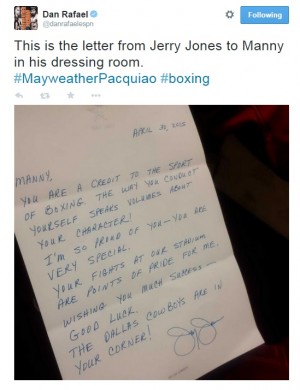 Dan Rafael
@danrafaelespn
Following
This is the letter from Jerry Jones to Manny
in his dressing room.
#MayweatherPacquiao #boxing
APRIL 30, 2015
MANNY,
YOU ARE A CREDIT TO THE SPORT
OF BOXING. THE WAY YOU CONDUCT
YOURSELF SPEAKS VOLUMES ABOUT
YOUR CHARACTER!
I'M SO PROUD OF YOU—YOU ARE
VERY SPECIAL.
YOUR FIGHTS AT OUR STADIUM
ARE POINTS OF PRIDE FOR ME.
WISHING YOU MUCH SUCCESS—
GOOD LUCK.
THE DALLAS COWBOYS ARE IN
YOUR CORNER!